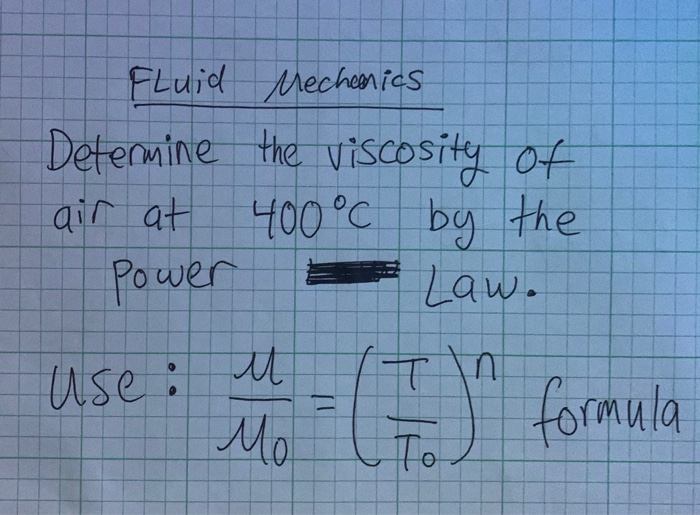 FLuid Mechanics
Determine the viscosity of
air at 400°C by the
Power Law.
use: μ/μ₀ = (T/T₀)ⁿ formula